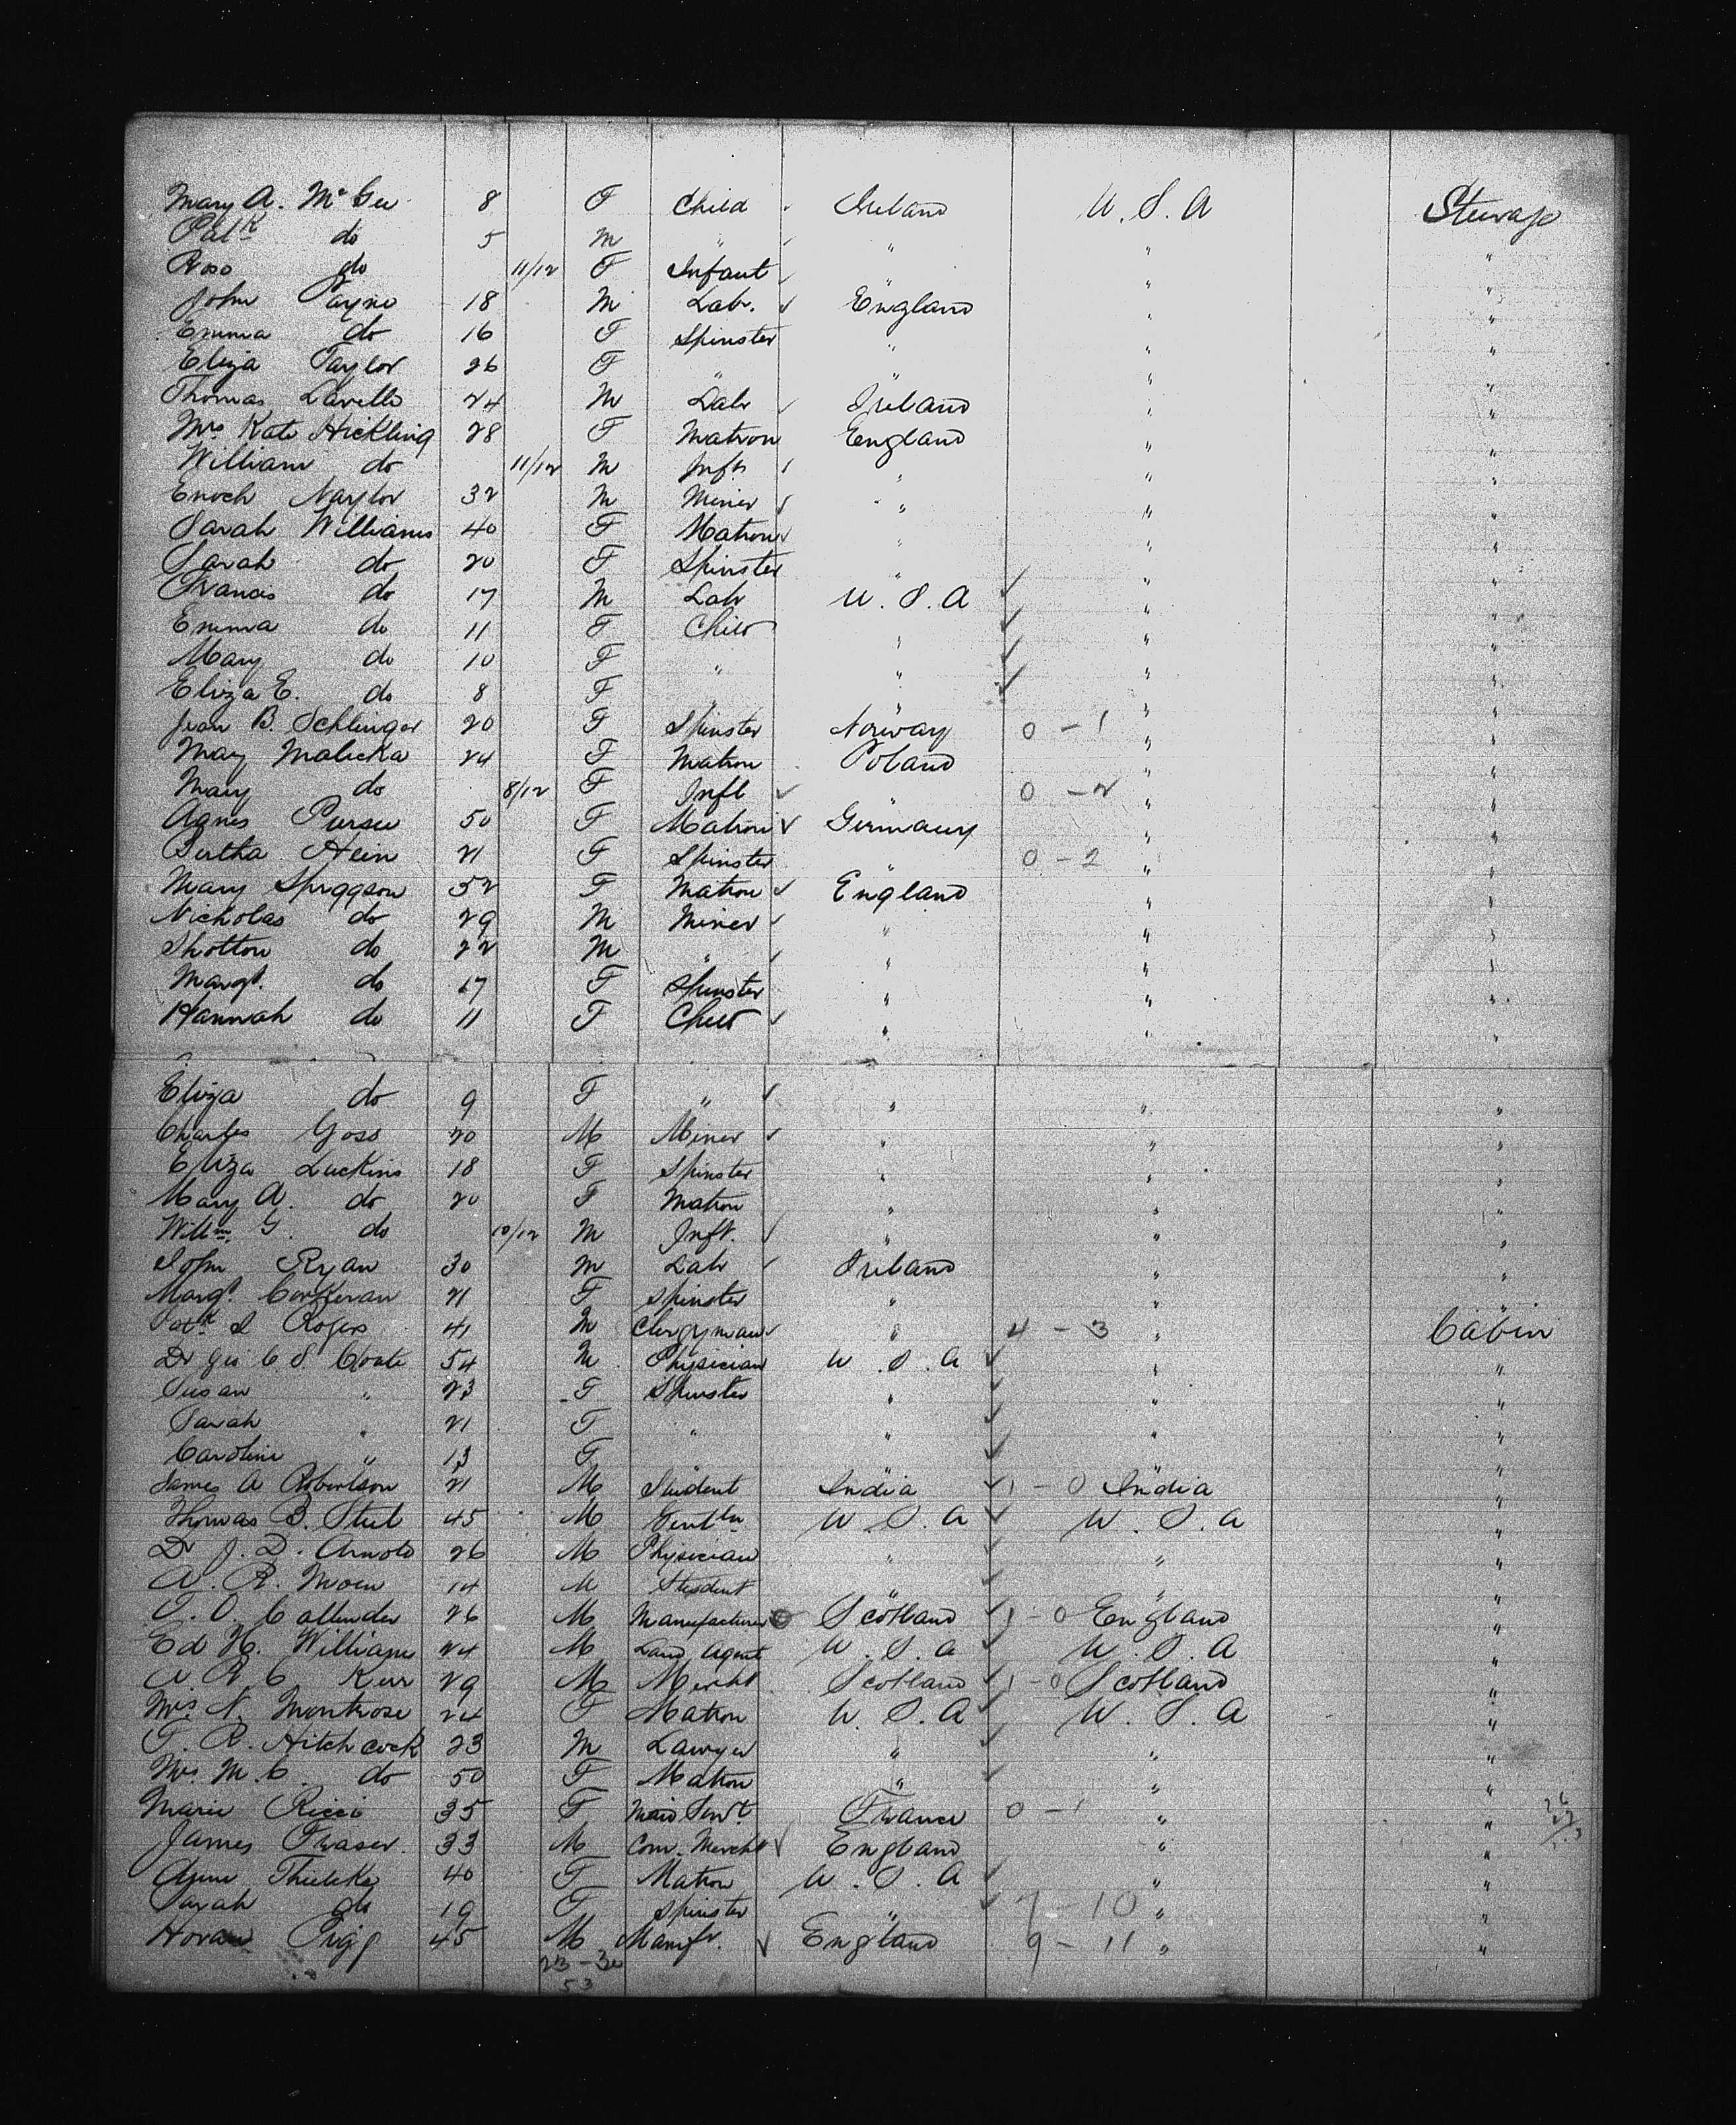 Mary A. McGee 8 F Child Ireland U.S.A Steerage
Patk do 5 M " " " "
Rose do 11/12 F Infant " " "
John Payne 18 M Labr. England " "
Emma do 16 F Spinster " " "
Eliza Taylor 26 F " " " "
Thomas Lavelle 24 M Labr Ireland " "
Mrs Kate Hickling 28 F Matron England " "
William do 11/12 M Inft " " "
Enoch Naylor 32 M Miner " " "
Sarah Williams 40 F Matron " " "
Sarah do 20 F Spinster " " "
Francis do 17 M Labr U.S.A " "
Emma do 11 F Child " " "
Mary do 10 F " " " "
Eliza E. do 8 F " " "
Jean B. Schlinger 20 F Spinster Norway 0 - 1 " "
May Malicka 24 F Matron Poland " "
Mary do 8/12 F Inft " 0 - 2 " "
Agnes 50 F Matron Germany " "
Bertha Hein 21 F Spinster " 0 - 2 " "
Mary Spraggson 52 F Matron England " "
Nicholas do 29 M Miner " " "
Shotton do 22 M " " " "
Margt. do 17 F Spinster " " "
Hannah do 11 F Child " " "
Eliza do 9 F " " " "
Charles Goss 20 M Miner " " "
Eliza Luckins 18 F Spinster " " "
Mary A. do 20 F Matron " " "
Willm. G. do 10/12 M Inft. " " "
John Ryan 30 M Labr Ireland " "
Margt. Corkeran 21 F Spinster " " "
Patk S Rogers 41 M Clergyman " 4 - 3 " Cabin
Dr C. S. Coate 54 M Physician U.S.A " "
Susan " 23 F Spinster " " "
Sarah " 21 F " " " "
Caroline " 13 F " " " "
James A Robertson 21 M Student India 1 - 0 India "
Thomas B. Steel 45 M Gentln U.S.A U.S.A "
Dr J. D. Arnold 26 M Physician " " "
A. R. Moen 14 M Student " " "
T. O. Callender 26 M Manufacturer Scotland 1 - 0 England "
Ed H. Williams 24 M Land Agent U.S.A U.S.A "
A. R. C Kerr 29 M Mercht Scotland 1 - 0 Scotland "
Mrs. N. Montrose 24 F Matron U.S.A U.S.A "
T. R. Hitchcock 23 M Lawyer " " "
Mrs. M. C. do 50 F Matron " " "
Marie Ricci 35 F Maid Servt. France 0 - 1 " "
James Fraser 33 M Com. Mercht England " "
Anne Thielke 40 F Matron U.S.A " "
Sarah do 19 F Spinster " 7 - 10 " "
Pigg 45 M Manufr. England 9 - 11 " "
23 - 30
53